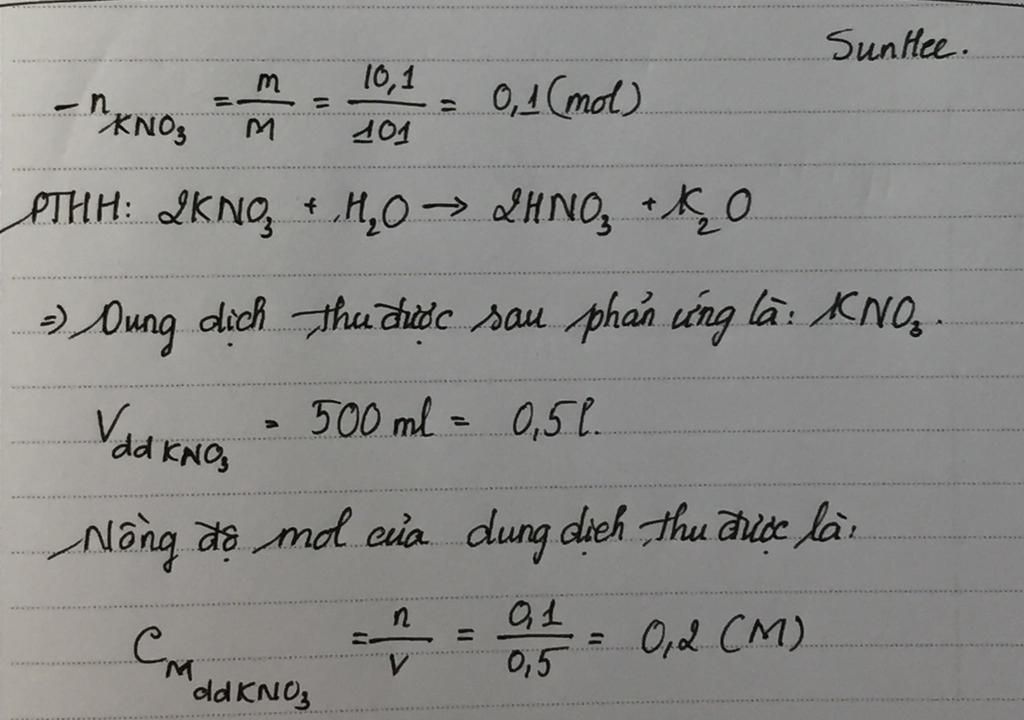 SunHee.
- n KNO₃ = m/M = 10,1/101 = 0,1 (mol)
PTHH: 2KNO₃ + H₂O → 2HNO₃ + K₂O
=> Dung dịch thu được sau phản ứng là: KNO₃.
V dd KNO₃ = 500 ml = 0,5 l.
Nồng độ mol của dung dịch thu được là:
C M dd KNO₃ = n/V = 0,1/0,5 = 0,2 (M)